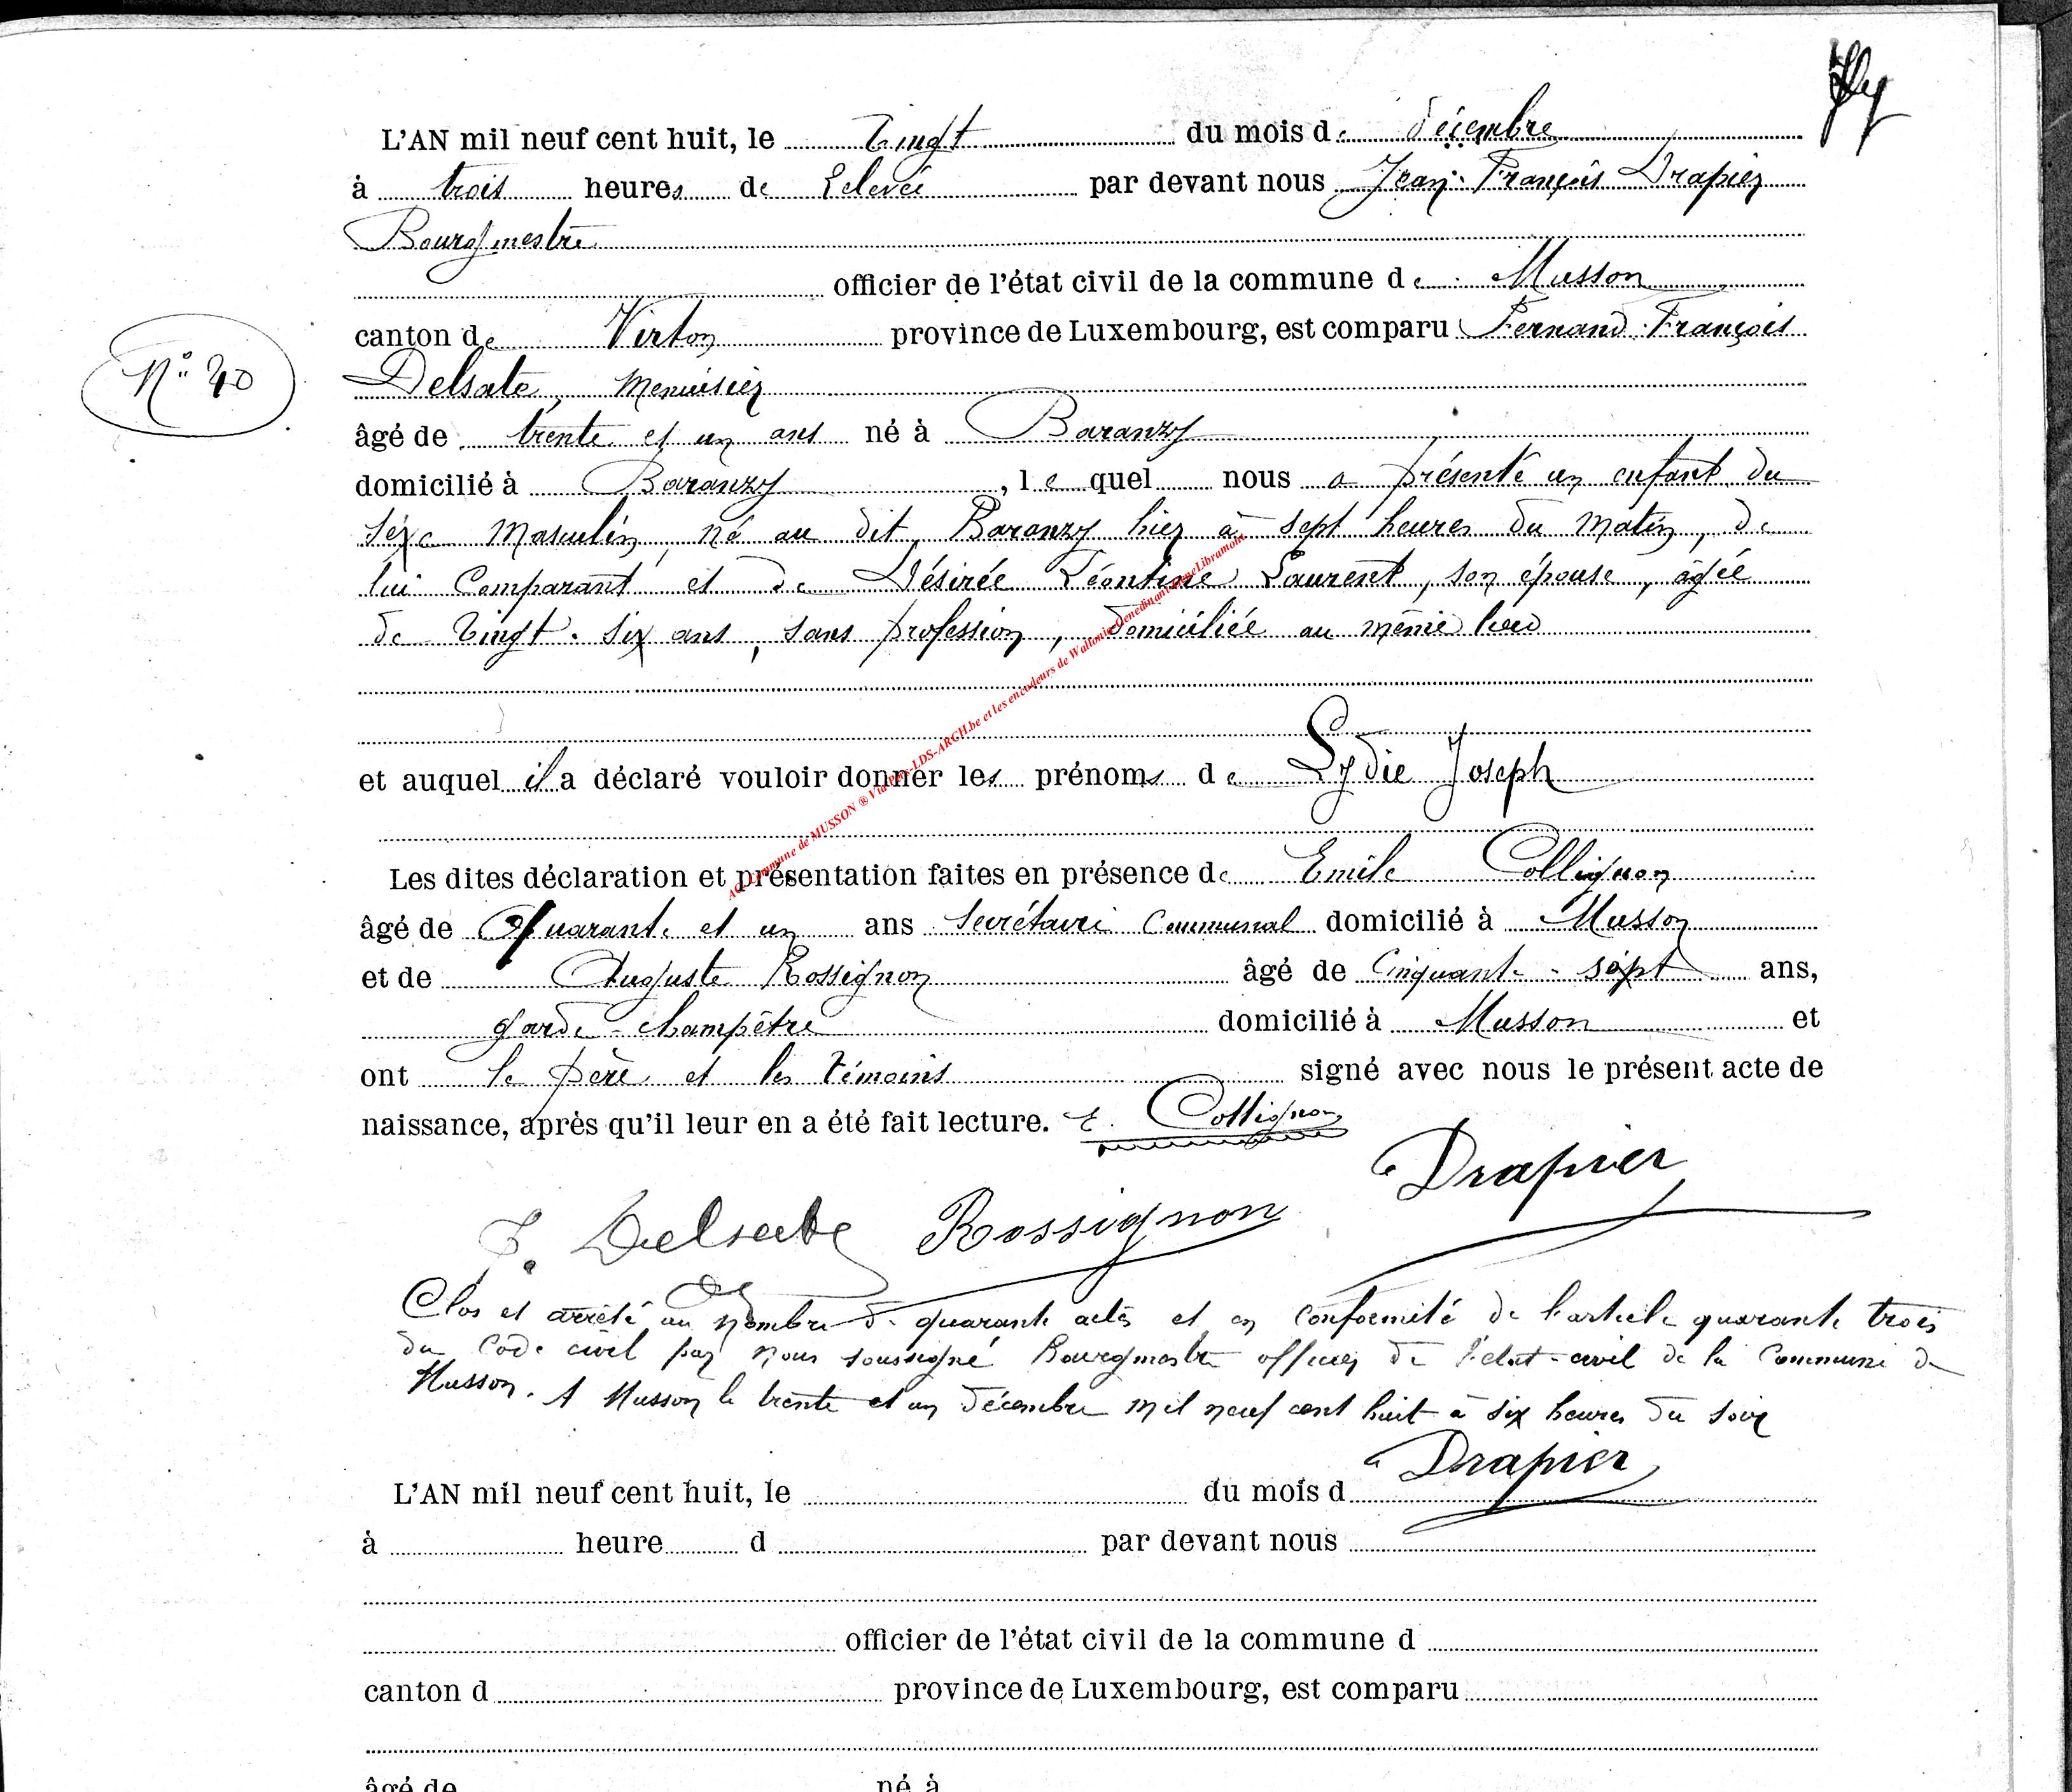 L'AN mil neuf cent huit, le Vingt du mois de décembre
à trois heures de Relevée par devant nous Jean-François Drapier
Bourgmestre
officier de l'état civil de la commune de Musson
canton de Virton province de Luxembourg, est comparu Fernand François
N° 40
Delsate, menuisier
âgé de trente et un ans né à Baranzy
domicilié à Baranzy, lequel nous a présenté un enfant du
sexe masculin, né au dit Baranzy hier à sept heures du matin, de
lui comparant et de Désirée Léontine Laurent, son épouse, âgée
de vingt-six ans, sans profession, domiciliée au même lieu
et auquel il a déclaré vouloir donner les prénoms de Lydie Joseph
Les dites déclaration et présentation faites en présence de Emile Collignon
âgé de Quarante et un ans secrétaire communal domicilié à Musson
et de Auguste Rossignon âgé de Cinquante-sept ans,
garde-champêtre domicilié à Musson et
ont le père et les témoins signé avec nous le présent acte de
naissance, après qu'il leur en a été fait lecture. E. Collignon
Drapier
F. Delsate Rossignon
Clos et arrêté au nombre de quarante actes et en conformité de l'article quarante trois
du Code civil par nous soussigné Bourgmestre officier de l'état-civil de la Commune de
Musson. A Musson le trente et un décembre mil neuf cent huit à six heures du soir
Drapier
L'AN mil neuf cent huit, le du mois d
à heure d par devant nous
officier de l'état civil de la commune d
canton d province de Luxembourg, est comparu
âgé de né à